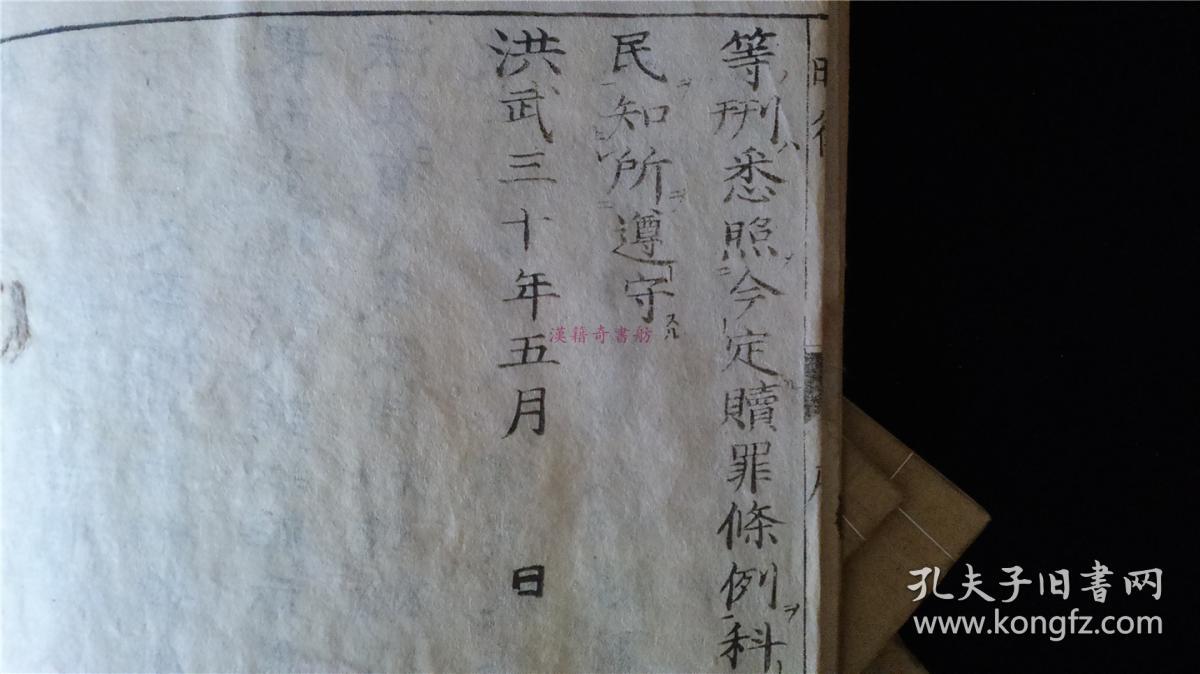 等刑悉照今定贖罪條例科
民知所遵守
洪武三十年五月 日
漢籍奇書舫
孔夫子旧书网
www.kongfz.com